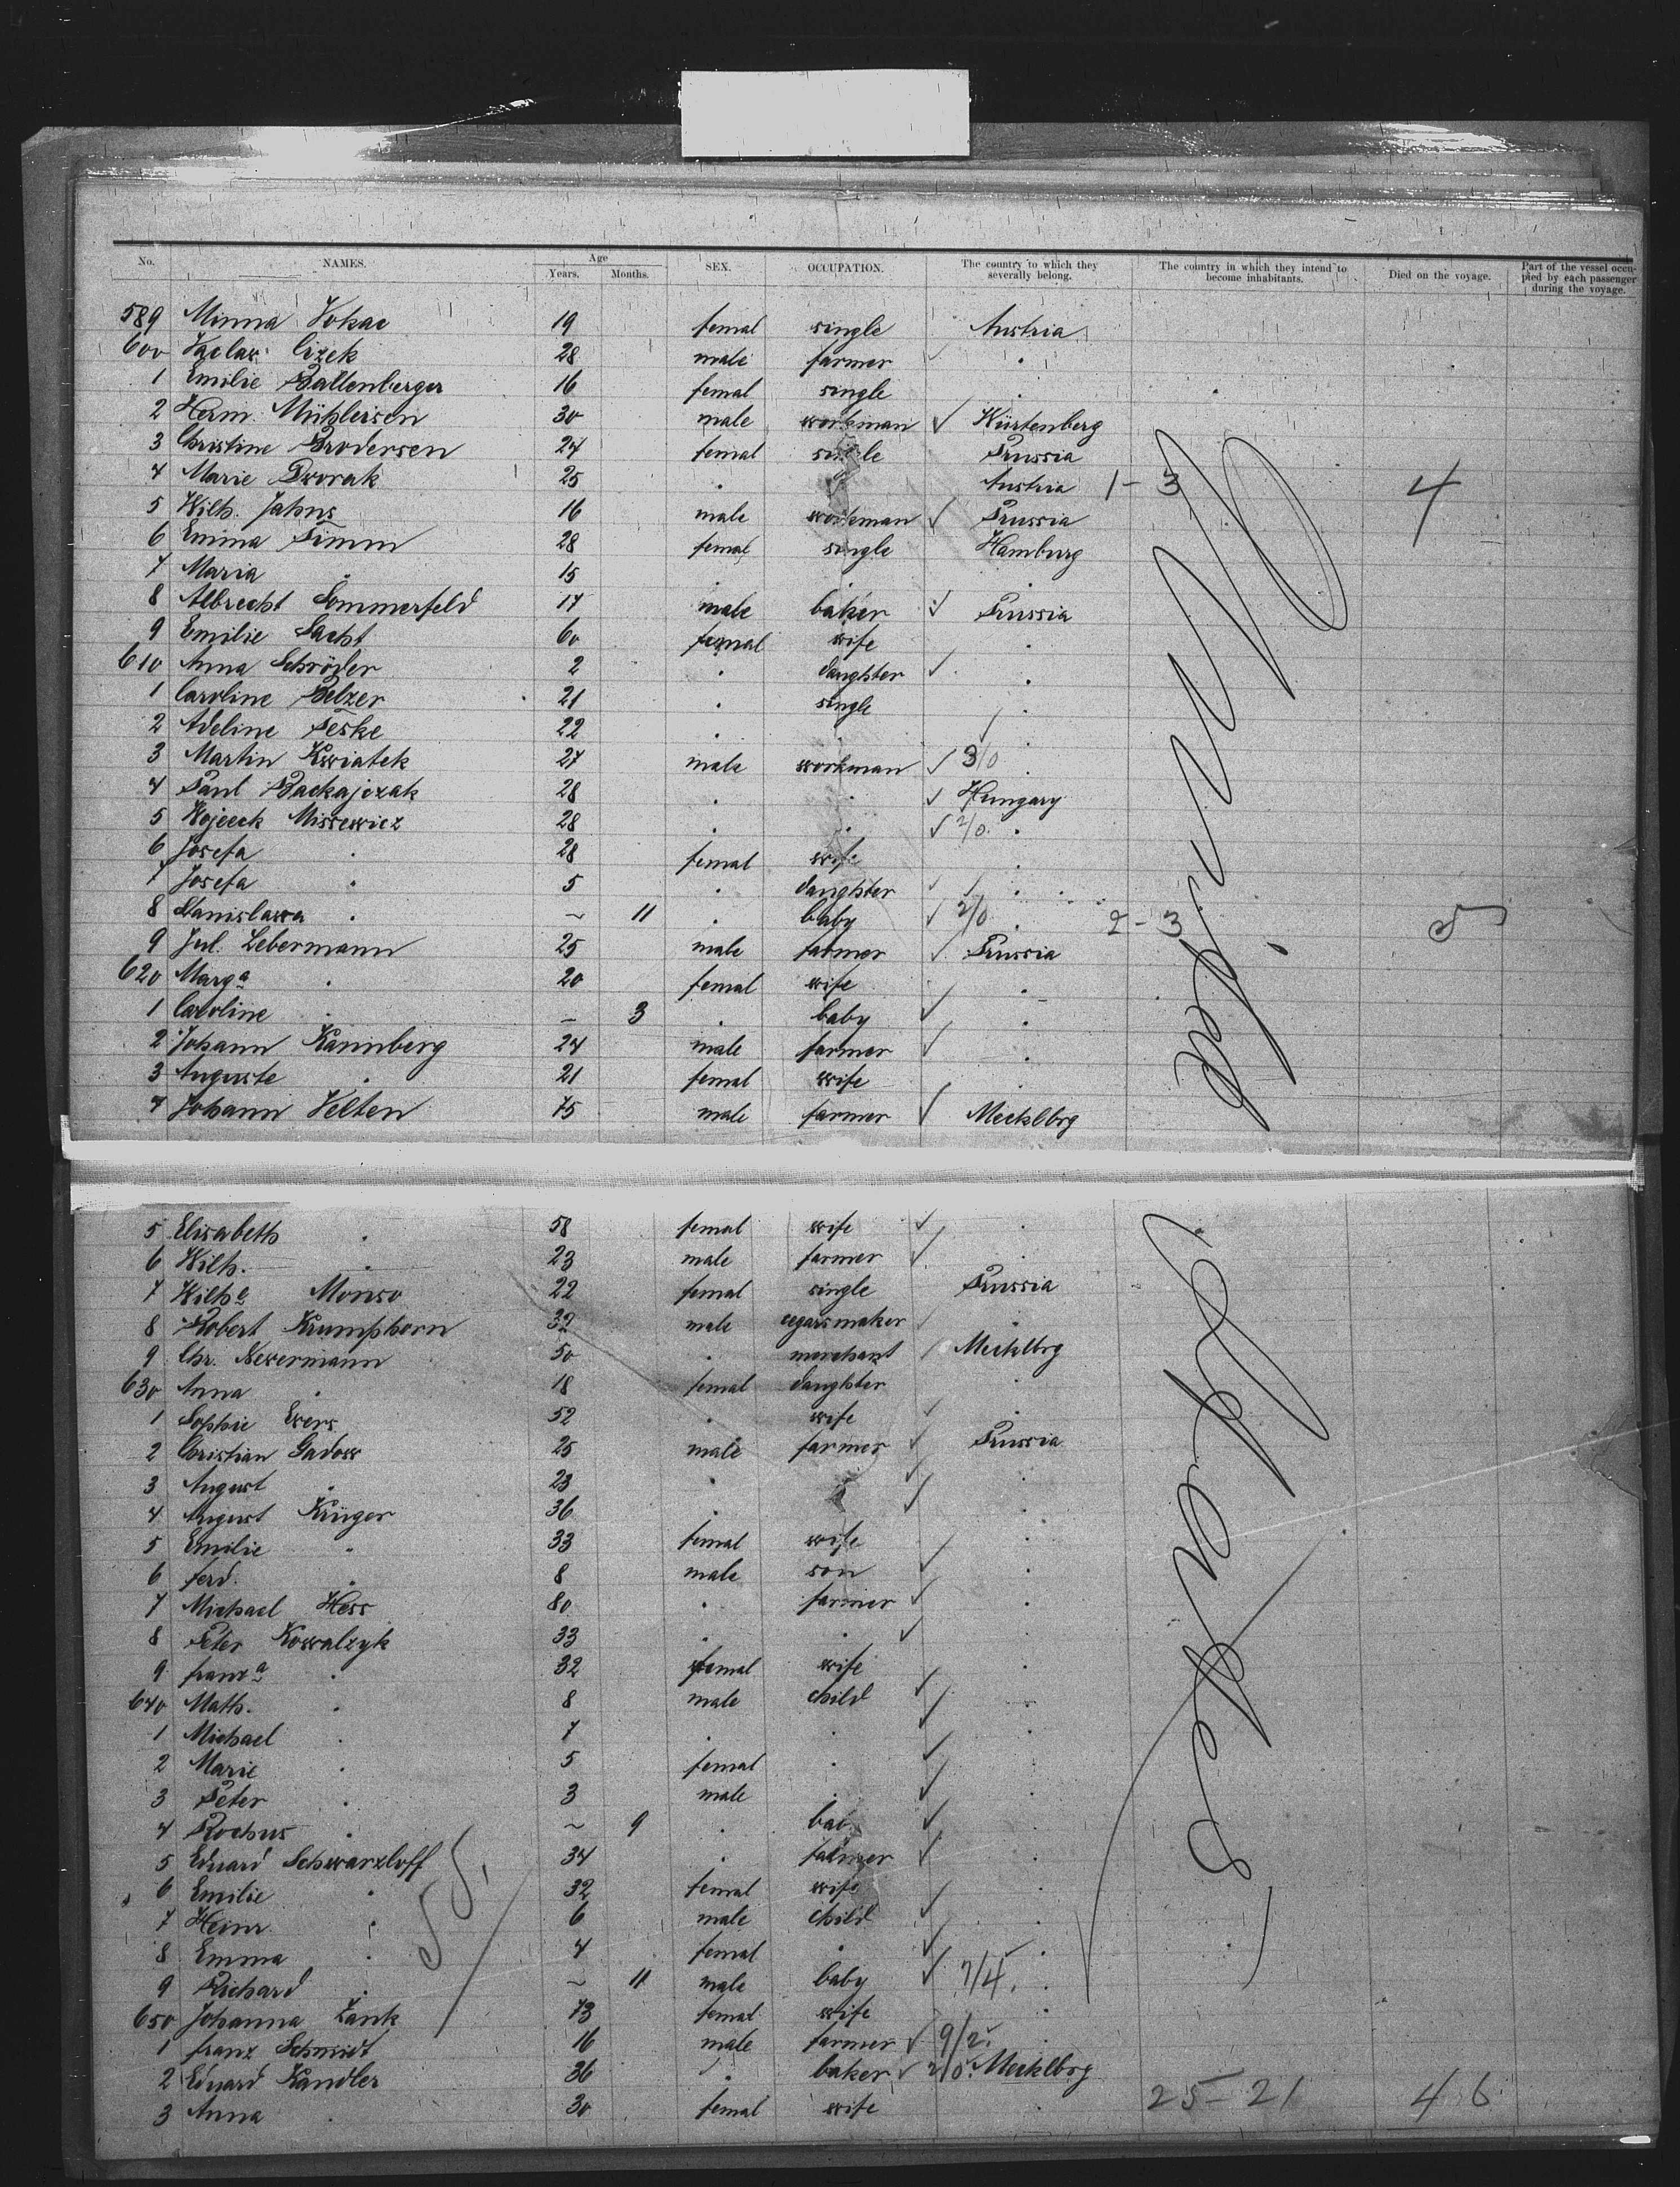 No. NAMES. Age Years. Months. SEX. OCCUPATION. The country to which they severally belong. The country in which they intend to become inhabitants. Died on the voyage. Part of the vessel occupied by each passenger during the voyage.
589 Minna Vokac 19 femal single Austria
600 Vaclav Cizek 28 male farmer "
1 Emilie Battenberger 16 femal single "
2 Herm. Mühleisen 30 male workman ✓ Würtenberg
3 Christine Brodersen 24 femal single Prussia
4 Marie Dworak 25 " " Austria 1-3 4
5 Wilh. Jahns 16 male workman ✓ Prussia
6 Emma Timm 28 femal single Hamburg
7 Maria " 15 " " "
8 Albrecht Sommerfeld 17 male baker ✓ Prussia
9 Emilie Sacht 60 femal wife "
610 Anna Schröder 2 " daughter ✓ "
1 Caroline Belzer 21 " single "
2 Adeline Teske 22 " " ✓ "
3 Martin Kwiatek 27 male workman ✓ 3/0 "
4 Paul Backajczak 28 " " ✓ Hungary
5 Wojceck Missewicz 28 " " ✓ 2/0 "
6 Josefa " 28 femal wife "
7 Josefa " 5 " daughter ✓ "
8 Stanislawa " ~ 11 " baby ✓ 2/0 " 2-3 5
9 Jul. Lebermann 25 male farmer ✓ Prussia
620 Marga " 20 femal wife "
1 Caroline " – 3 " baby ✓ "
2 Johann Kannberg 24 male farmer ✓ "
3 Auguste " 21 femal wife "
4 Johann Velten 75 male farmer ✓ Mecklbrg
5 Elisabeth " 58 femal wife ✓ "
6 Wilh. " 23 male farmer ✓ "
7 Wilhe Monso 22 femal single Prussia
8 Robert Krumphorn 32 male cegarsmaker ✓ "
9 Chr. Newermann 50 " merchant / Mecklbrg
630 Anna " 18 femal daughter "
1 Sophie Ewers 52 " wife ✓ "
2 Christian Gadow 25 male farmer ✓ Prussia
3 August " 23 " " ✓ "
4 August Krüger 36 " " ✓ "
5 Emilie " 33 femal wife "
6 ferd. " 8 male son ✓ "
7 Michael Hess 80 " farmer ✓ "
8 Peter Kowalzyk 33 " " ✓ "
9 franza " 32 femal wife "
640 Math. " 8 male child ✓ "
1 Michael " 7 " " ✓
2 Marie " 5 femal " ✓
3 Peter " 3 male " ✓ "
4 Rochus " ~ 9 " bab ✓ "
5 Eduard Schwarzloff 34 " farmer ✓ "
6 Emilie " 32 femal wife "
7 Heinr. " 6 male child ✓ "
8 Emma " 4 femal " ✓ "
9 Richard " ~ 11 male baby ✓ 7/4. "
650 Johanna Zank 73 femal wife "
1 franz Schmidt 16 male farmer ✓ 9/2. "
2 Eduard Kandler 36 " baker ✓ 2/0. Mecklbrg
3 Anna " 30 femal wife " 25-21 46